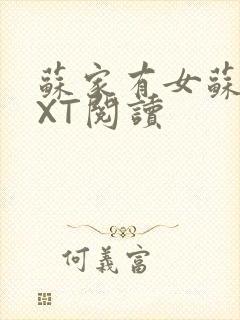 蘇家有女蘇
XT閱讀
何義富